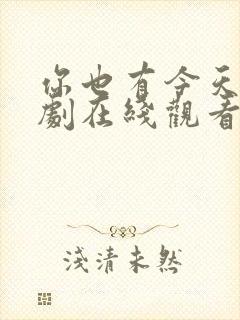 你也有今天
劇在綫觀看
淺清未然